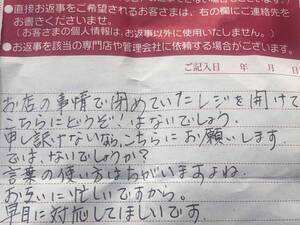 ●直接お返事をご希望されるお客さまは、右の欄にご連絡先を
お書きくださいませ。
(お客さまの個人情報は、お返事以外に使用いたしません。)
●お返事を該当の専門店や管理会社に依頼する場合がございます。
ご記入日 年 月 日
お店の事情で閉めていたレジを開けて
こちらにどうぞ!はないでしょう。
申し訳けないなら、こちらにお願いします
では、ないでしょうか?
言葉の使い方はちがいますよね
お互いに忙しいですから。
早目に対応してほしいです。